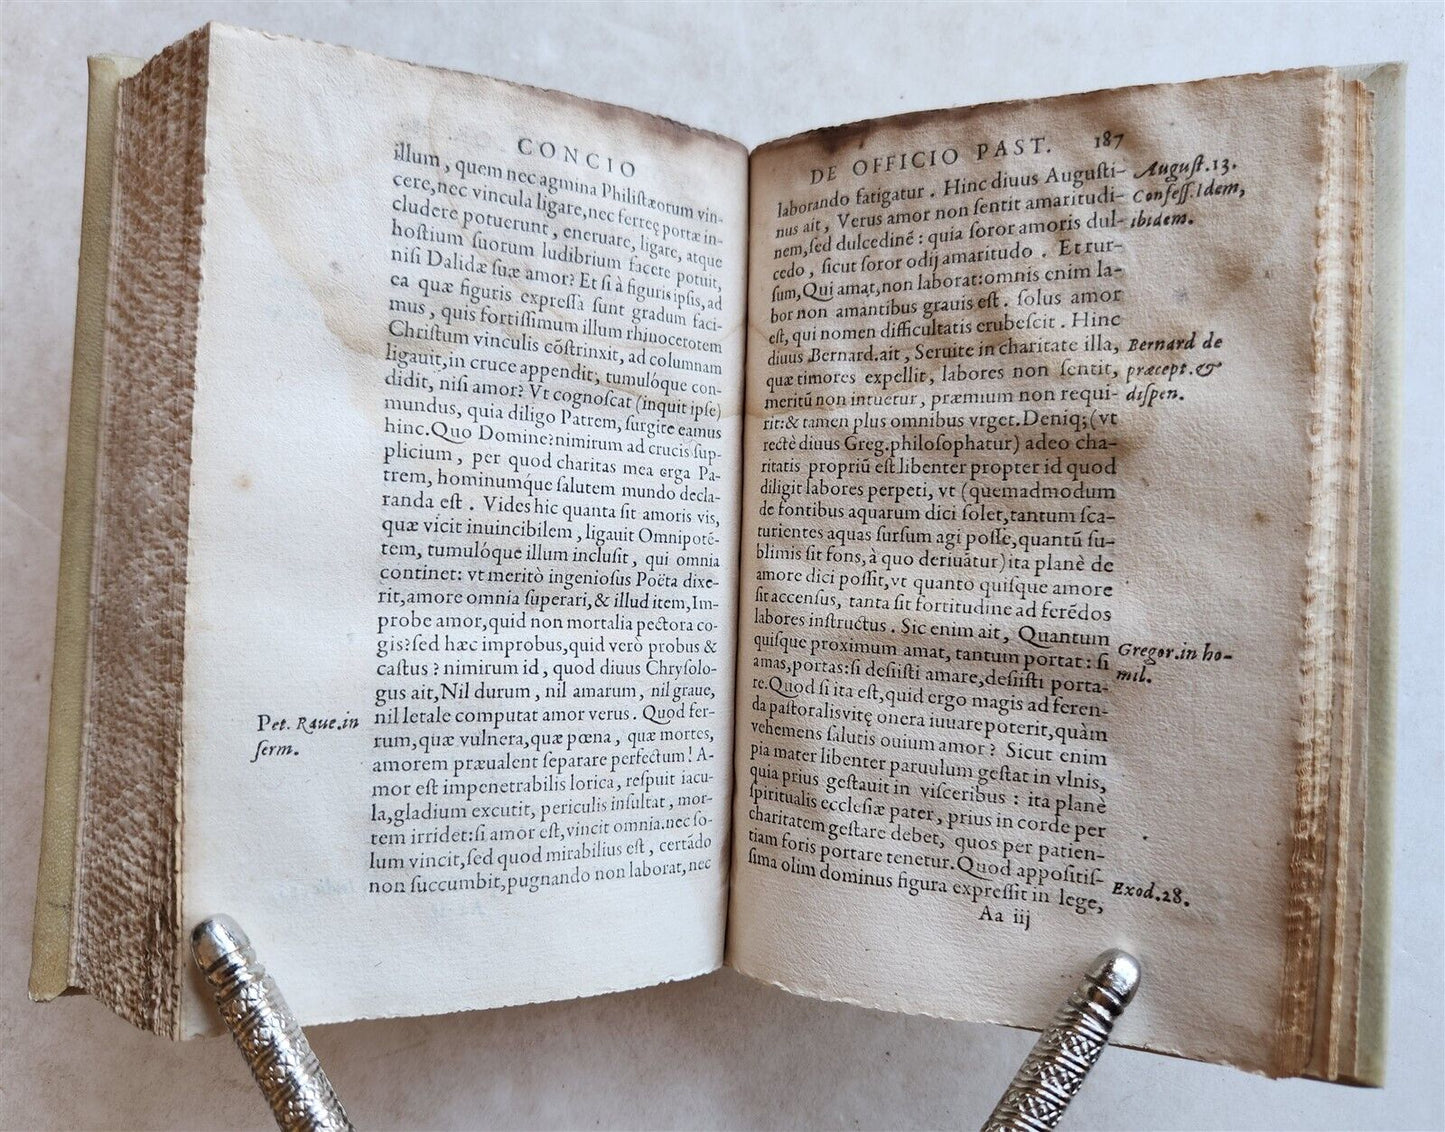 CONCIO
illum, quem nec agmina Philiſtæorum vin-
cere, nec vincula ligare, nec ferreę portæ in-
cludere potuerunt, eneruare, ligare, atque
hoſtium ſuorum ludibrium facere potuit,
niſi Dalidæ ſuæ amor? Et ſi à figuris ipſis, ad
ea quæ figuris expreſſa ſunt gradum faci-
mus, quis fortiſſimum illum rhinocerotem
Chriſtum vinculis cõſtrinxit, ad columnam
ligauit, in cruce appendit, tumulóque con-
didit, niſi amor? Vt cognoſcat (inquit ipſe)
mundus, quia diligo Patrem, ſurgite eamus
hinc. Quo Domine? nimirum ad crucis ſup-
plicium, per quod charitas mea erga Pa-
trem, hominumq́ue ſalutem mundo decla-
randa eſt. Vides hic quanta ſit amoris vis,
quæ vicit inuincibilem, ligauit Omnipotẽ-
tem, tumulóque illum incluſit, qui omnia
continet: vt meritò ingenioſus Poëta dixe-
rit, amore omnia ſuperari, & illud item, Im-
probe amor, quid non mortalia pectora co-
gis? ſed hæc improbus, quid verò probus &
caſtus? nimirum id, quod diuus Chryſolo-
gus ait, Nil durum, nil amarum, nil graue,
nil letale computat amor verus. Quod fer-
rum, quæ vulnera, quæ pœna, quæ mortes,
amorem præualent ſeparare perfectum! A-
mor eſt impenetrabilis lorica, reſpuit iacu-
la, gladium excutit, periculis inſultat, mor-
tem irridet: ſi amor eſt, vincit omnia. nec ſo-
lum vincit, ſed quod mirabilius eſt, certãdo
non ſuccumbit, pugnando non laborat, nec
Pet. Raue. in
ſerm.
DE OFFICIO PAST. 187
laborando fatigatur. Hinc diuus Auguſti-
nus ait, Verus amor non ſentit amaritudi-
nem, ſed dulcedinẽ: quia ſoror amoris dul-
cedo, ſicut ſoror odij amaritudo. Et rur-
ſum, Qui amat, non laborat: omnis enim la-
bor non amantibus grauis eſt. ſolus amor
eſt, qui nomen difficultatis erubeſcit. Hinc
diuus Bernard. ait, Seruite in charitate illa,
quæ timores expellit, labores non ſentit,
meritũ non intuetur, præmium non requi-
rit: & tamen plus omnibus vrget. Deniq; (vt
rectè diuus Greg. philoſophatur) adeo cha-
ritatis propriũ eſt libenter propter id quod
diligit labores perpeti, vt (quemadmodum
de fontibus aquarum dici ſolet, tantum ſca-
turientes aquas ſurſum agi poſſe, quantũ ſu-
blimis ſit fons, à quo deriuãtur) ita planè de
amore dici poſſit, vt quanto quiſque amore
ſit accenſus, tanta ſit fortitudine ad ferẽdos
labores inſtructus. Sic enim ait, Quantum
quiſque proximum amat, tantum portat: ſi
amas, portas: ſi deſiiſti amare, deſiiſti porta-
re. Quod ſi ita eſt, quid ergo magis ad feren-
da paſtoralis vitę onera iuuare poterit, quàm
vehemens ſalutis ouium amor? Sicut enim
pia mater libenter paruulum geſtat in vlnis,
quia prius geſtauit in viſceribus: ita planè
ſpiritualis eccleſiæ pater, prius in corde per
charitatem geſtare debet, quos per patien-
tiam foris portare tenetur. Quod appoſitiſ-
ſima olim dominus figura expreſſit in lege,
Aa iij
Auguſt. 13.
Confeſſ. Idem,
ibidem.
Bernard de
præcept. &
diſpen.
Gregor. in ho-
mil.
Exod. 28.